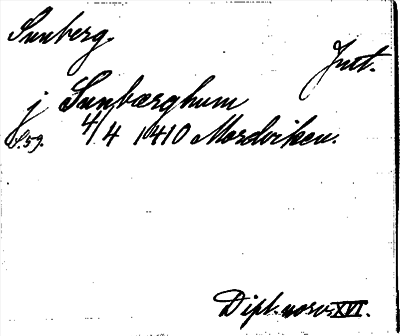 Sunberg.
Jmt.
j Sunbærghum
S. 59. 4/4 1410 Mordviken.
Dipl. norv. XVI.